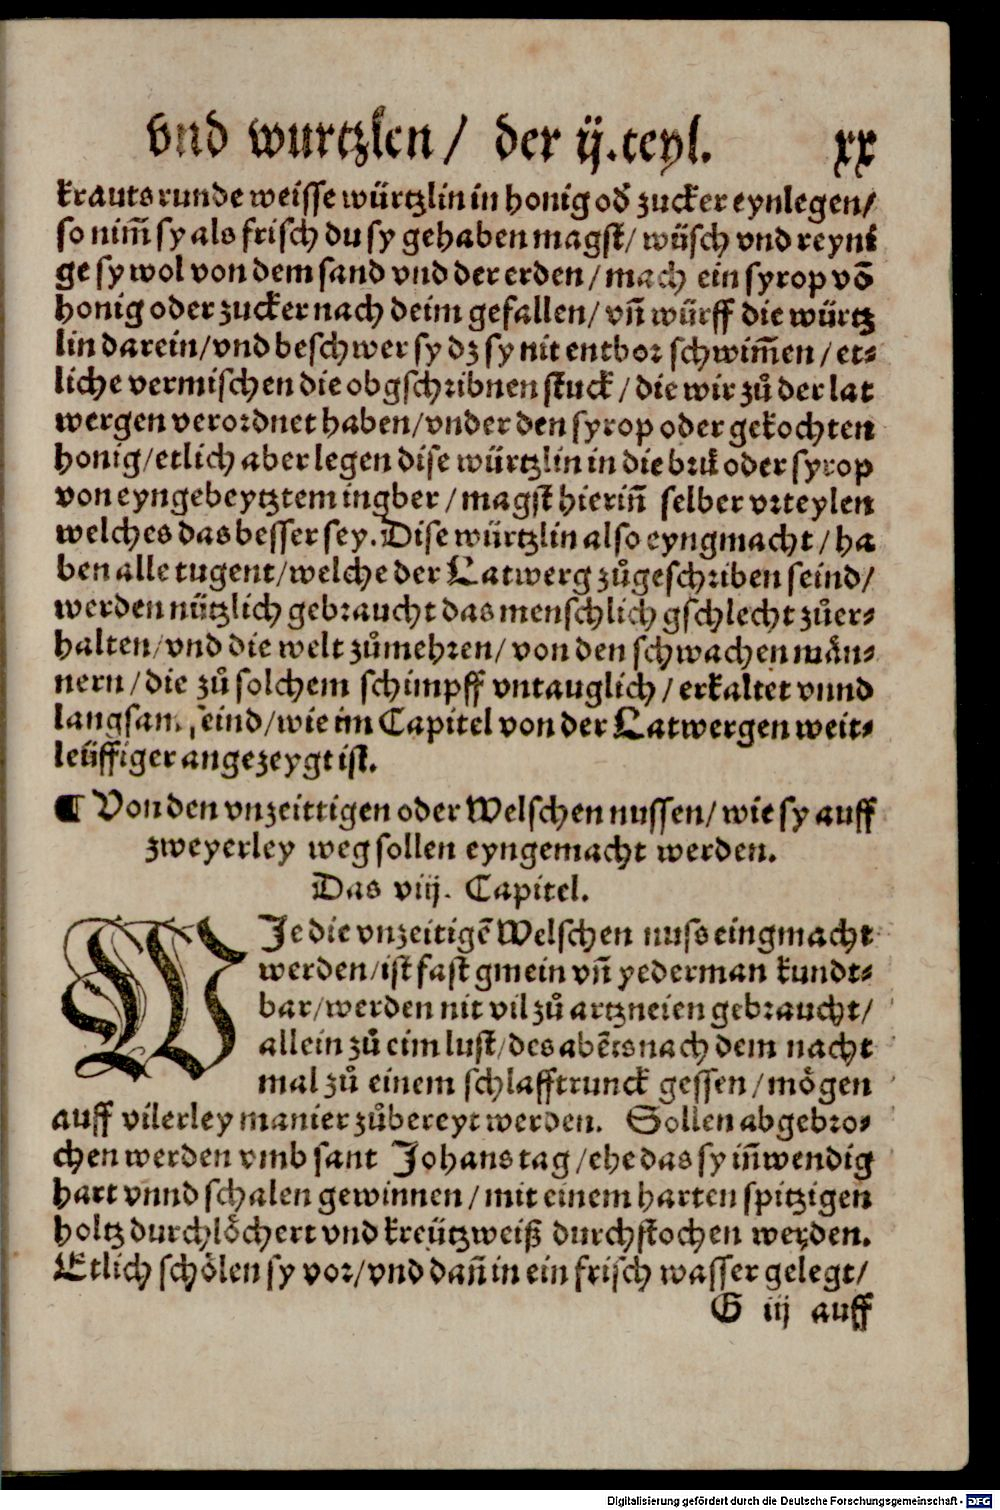 vnd wurtzlen / der ij.teyl. xx
krauts runde weisse würtzlin in honig od̕ zucker eynlegen/
so nim̄ sy als frisch du sy gehaben magst/ wüsch vnd reyni
ge sy wol von dem sand vnd der erden / mach ein syrop võ
honig oder zucker nach deim gefallen/ vn̄ würff die würtz
lin darein/vnd beschwer sy dz sy nit entbor schwim̄en / et⸗
liche vermischen die obgschribnen stuck / die wir zů der lat
wergen verordnet haben/vnder den syrop oder gekochten
honig/etlich aber legen dise würtzlin in die brü oder syrop
von eyngebeytztem ingber / magst hierin̄ selber vrteylen
welches das besser sey. Dise würtzlin also eyngmacht / ha
ben alle tugent/welche der Latwerg zůgeschriben seind/
werden nützlich gebraucht das menschlich gschlecht zůer⸗
halten/vnd die welt zůmehren/ von den schwachen män⸗
nern / die zů solchem schimpff vntauglich / erkaltet vnnd
langsam seind/wie im Capitel von der Latwergen weit⸗
leüffiger angezeygt ist.
¶ Von den vnzeittigen oder Welschen nussen/ wie sy auff
zweyerley weg sollen eyngemacht werden.
Das viij. Capitel.
WJe die vnzeitigē Welschen nuss eingmacht
werden/ist fast gmein vn̄ yederman kundt⸗
bar/werden nit vil zů artzneien gebraucht/
allein zů eim lust/des abēts nach dem nacht
mal zů einem schlafftrunck gessen / mögen
auff vilerley manier zůbereyt werden. Sollen abgebro⸗
chen werden vmb sant Johans tag / ehe das sy in̄wendig
hart vnnd schalen gewinnen / mit einem harten spitzigen
holtz durchlöchert vnd kreützweiß durchstochen werden.
Etlich schölen sy vor/vnd dan̄ in ein frisch wasser gelegt/
G iij auff
Digitalisierung gefördert durch die Deutsche Forschungsgemeinschaft - DFG